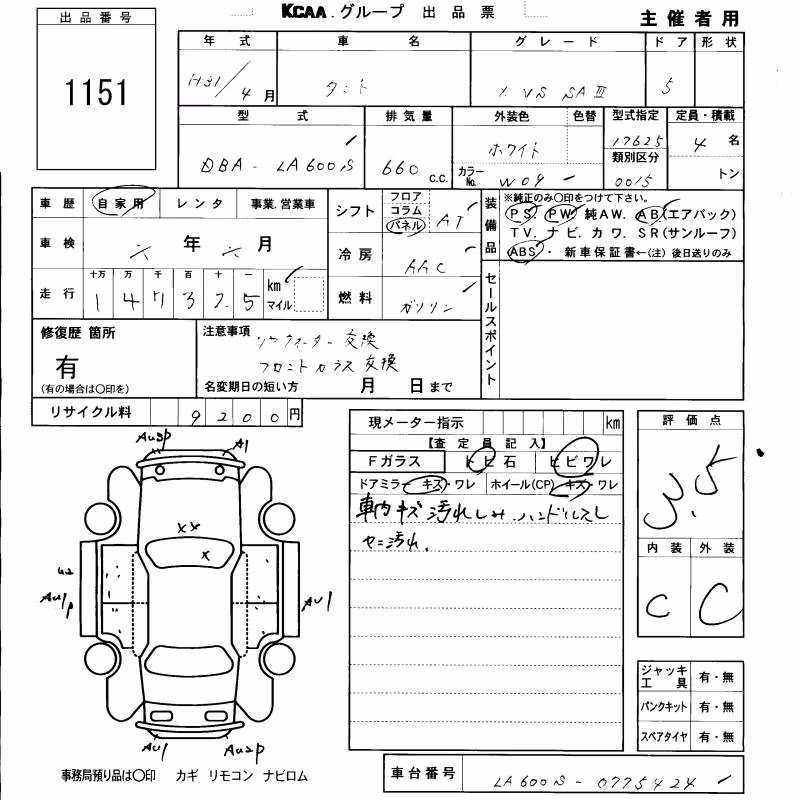 KCAA. グループ 出品票
主催者用
出品番号
1151
年式 車名 グレード ドア 形状
H31/4月 タント X VS SAⅢ 5
型式 排気量 外装色 色替 型式指定 定員・積載
DBA-LA600S 660 c.c. ホワイト 17625 4 名
カラーNo. W09 類別区分 0015 トン
車歴 自家用 レンタ 事業.営業車
シフト フロア コラム パネル AT
車検 年 月
冷房 AAC
走行 十万 万 千 百 十 一 km マイル
燃料 ガソリン
装備品 ※純正のみ〇印をつけて下さい。
PS. PW 純AW. AB(エアバック)
TV. ナビ. カワ. SR(サンルーフ)
ABS・ 新車保証書←(注) 後日送りのみ
セールスポイント
修復歴 箇所
有
(有の場合は〇印を)
注意事項
交換
フロントガラス交換
名変期日の短い方 月 日まで
リサイクル料 9200円
現メーター指示 km
【査定員記入】
Fガラス トビ石 ヒビワレ
ドアミラー キズ・ワレ ホイール(CP) キズ・ワレ
車内キズ汚れシミ.ハンドルスレ
汚れ.
評価点
3.5
内装 外装
C C
ジャッキ工具 有・無
パンクキット 有・無
スペアタイヤ 有・無
AU3P A1
XX
X
U2
AU1P AU1
AU1 AU2P
事務局預り品は〇印 カギ リモコン ナビロム
車台番号 LA600S-0775424